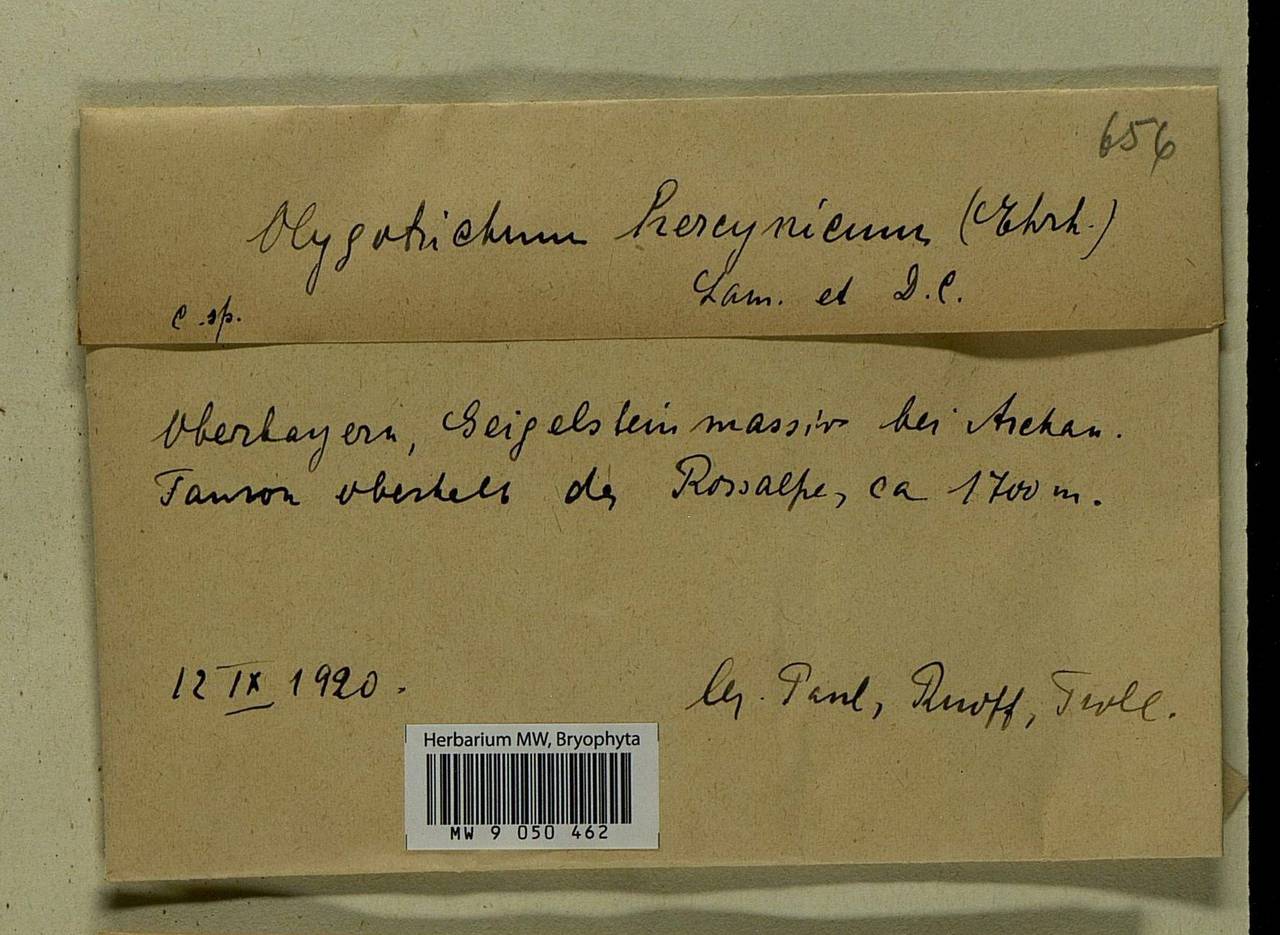 656
Olygotrichum hercynicum (Ehrh.)
Lam. et D.C.
c. sp.
Oberbayern, Geigelsteinmassiv bei Aschau.
oberhalb der Rossalpe, ca 1700 m.
12 IX 1920.
leg. Paul, Ruoff, Troll.
Herbarium MW, Bryophyta
MW 9 050 462